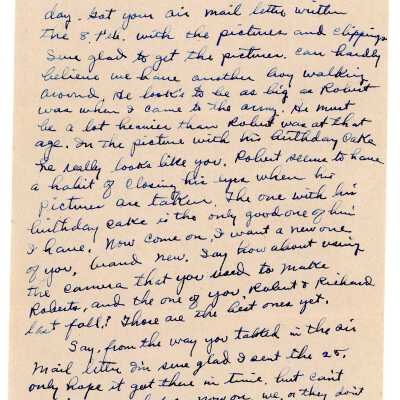 day. Got your air mail letter written
the 8th. with the pictures and clippings
Sure glad to get the pictures. can hardly
believe we have another boy walking
around. He looks to be as big as Robert
was when I came to the army. He must
be a lot heavier than Robert was at that
age. In the picture with his birthday cake
he really looks like you. Robert seems to have
a habit of closing his eyes when his
pictures are taken. The one with his
birthday cake is the only good one of him
I have. Now come on, I want a new one
of you, brand new. Say how about using
the camera that you used to make
Roberts, and the one of you Robert & Richard
last fall? Those are the best ones yet.
Say, from the way you talked in the air
mail letter I'm sure glad I sent the 25.
only hope it got there in time, but can't
now on we, or they don't